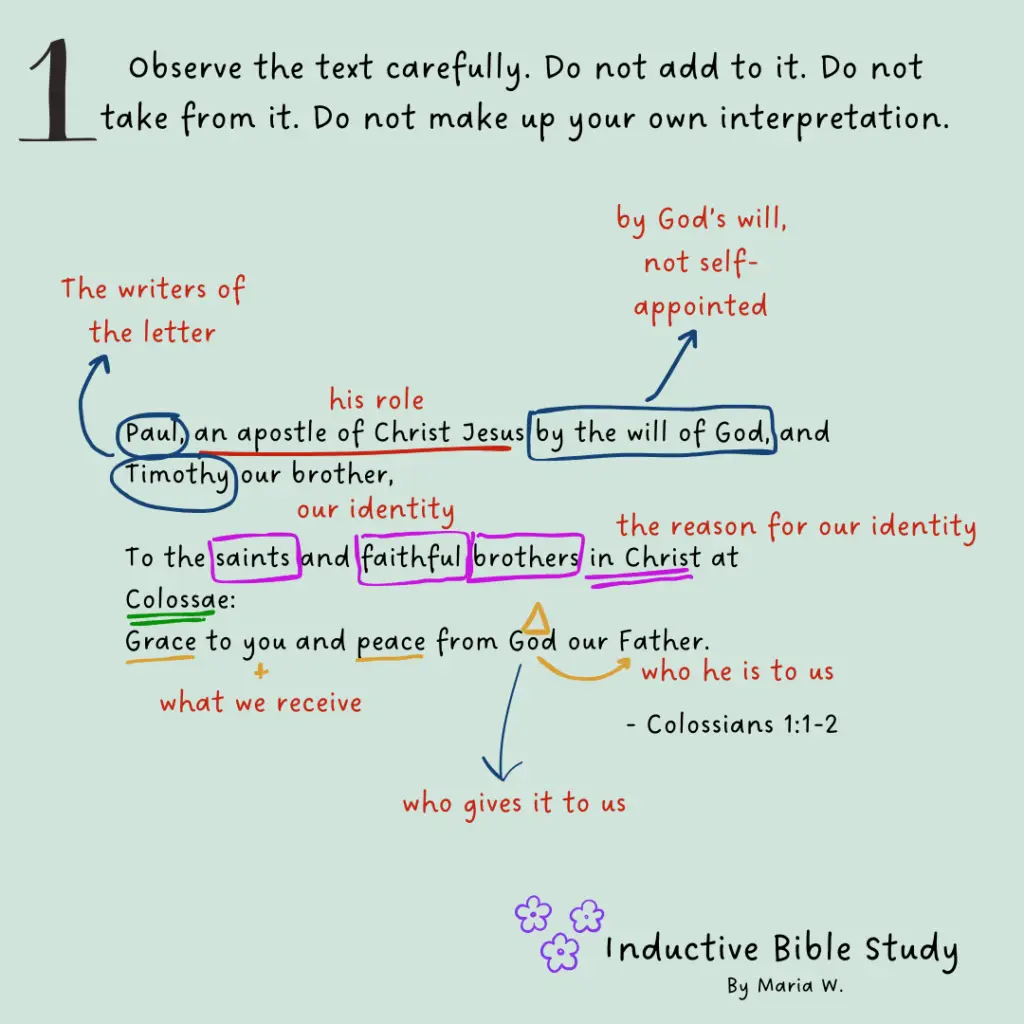 1
Observe the text carefully. Do not add to it. Do not
take from it. Do not make up your own interpretation.
by God's will,
not self-
appointed
The writers of
the letter
his role
Paul, an apostle of Christ Jesus by the will of God, and
Timothy our brother,
our identity
the reason for our identity
To the saints and faithful brothers in Christ at
Colossae:
Grace to you and peace from God our Father.
+
who he is to us
what we receive
- Colossians 1:1-2
who gives it to us
Inductive Bible Study
By Maria W.